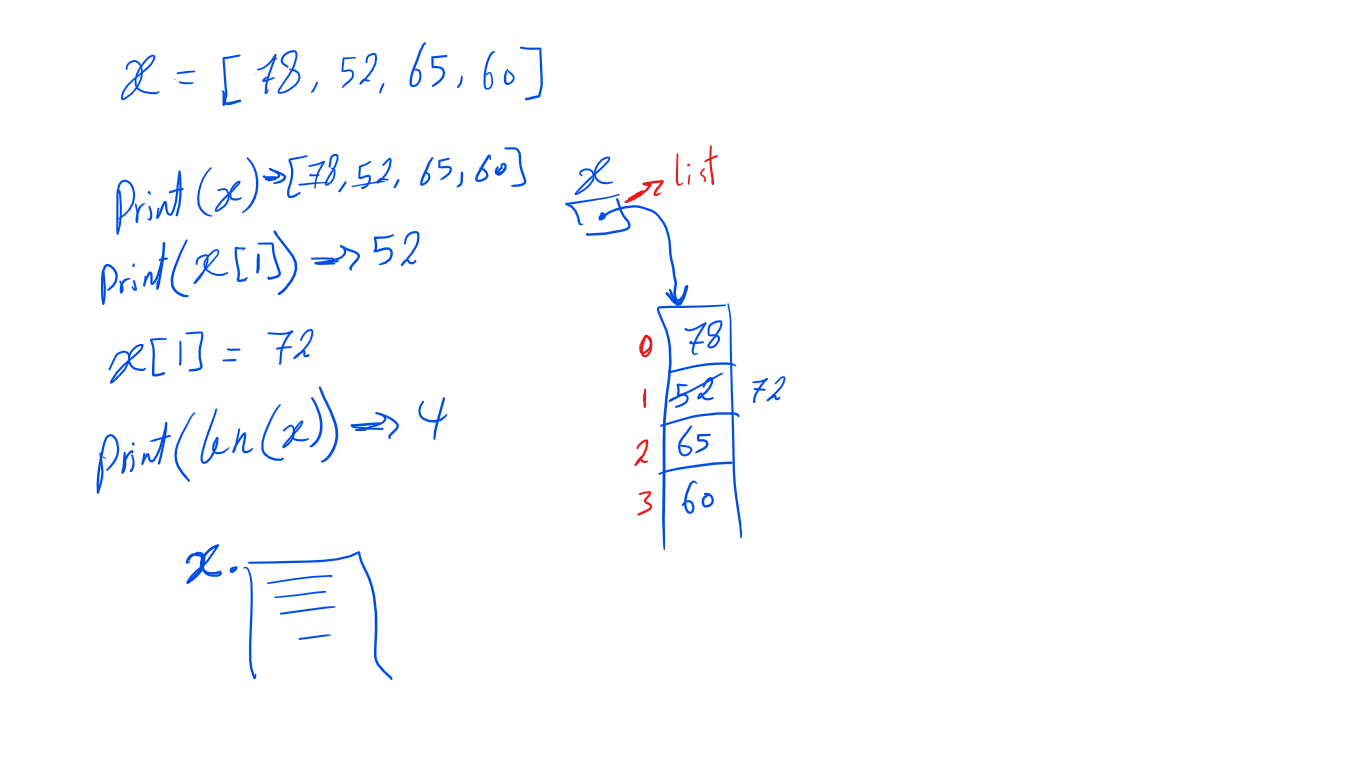 x = [ 78, 52, 65, 60 ]
Print (x) → [78, 52, 65, 60]
Print(x[1]) → 52
x[1] = 72
Print(len(x)) → 4
x.
x → list
0 78
1 52 72
2 65
3 60